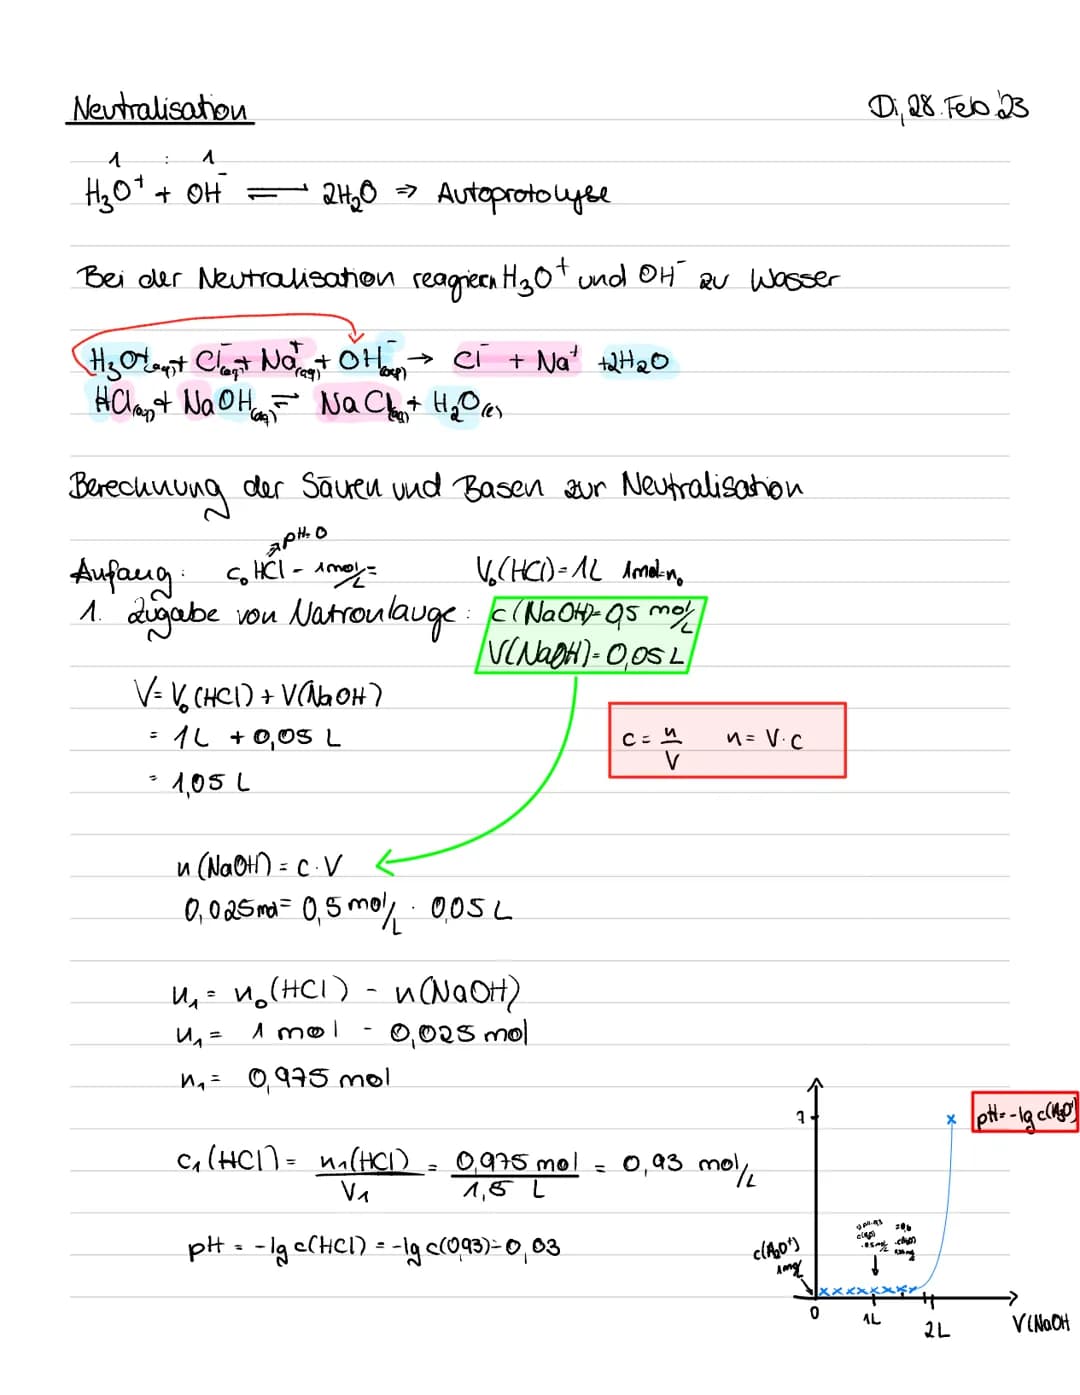 Neutralisation
Di, 28. Feb '23
1 : 1
H₃O⁺ + OH⁻ ⇌ 2H₂O ⇒ Autoprotolyse
Bei der Neutralisation reagiern H₃O⁺ und OH⁻ zu Wasser
H₃O⁺(aq) + Cl⁻(aq) + Na⁺(aq) + OH⁻(aq) → Cl⁻ + Na⁺ + 2H₂O
HCl(aq) + NaOH(aq) ⇌ NaCl(aq) + H₂O(l)
Berechnung der Säuren und Basen zur Neutralisation
↗ pH=0
Anfang: c₀ HCl = 1 mol/L = V₀(HCl) = 1L 1mol=n₀
1. Zugabe von Natronlauge: c(NaOH)= 0,5 mol/L
V(NaOH)= 0,05 L
V= V₀(HCl) + V(NaOH)
= 1L + 0,05 L
= 1,05 L
c = n/V n = V·c
n(NaOH) = c·V
0,025 mol = 0,5 mol/L · 0,05 L
n₁ = n₀(HCl) - n(NaOH)
n₁ = 1 mol - 0,025 mol
n₁ = 0,975 mol
c₁(HCl) = n₁(HCl)/V₁ = 0,975 mol/1,5 L = 0,93 mol/L
pH = -lg c(HCl) = -lg c(0,93) = 0,03
7
pH=-lg c(H₃O⁺)
c(H₃O⁺)
1 mol/L
0
1L
2L
V(NaOH